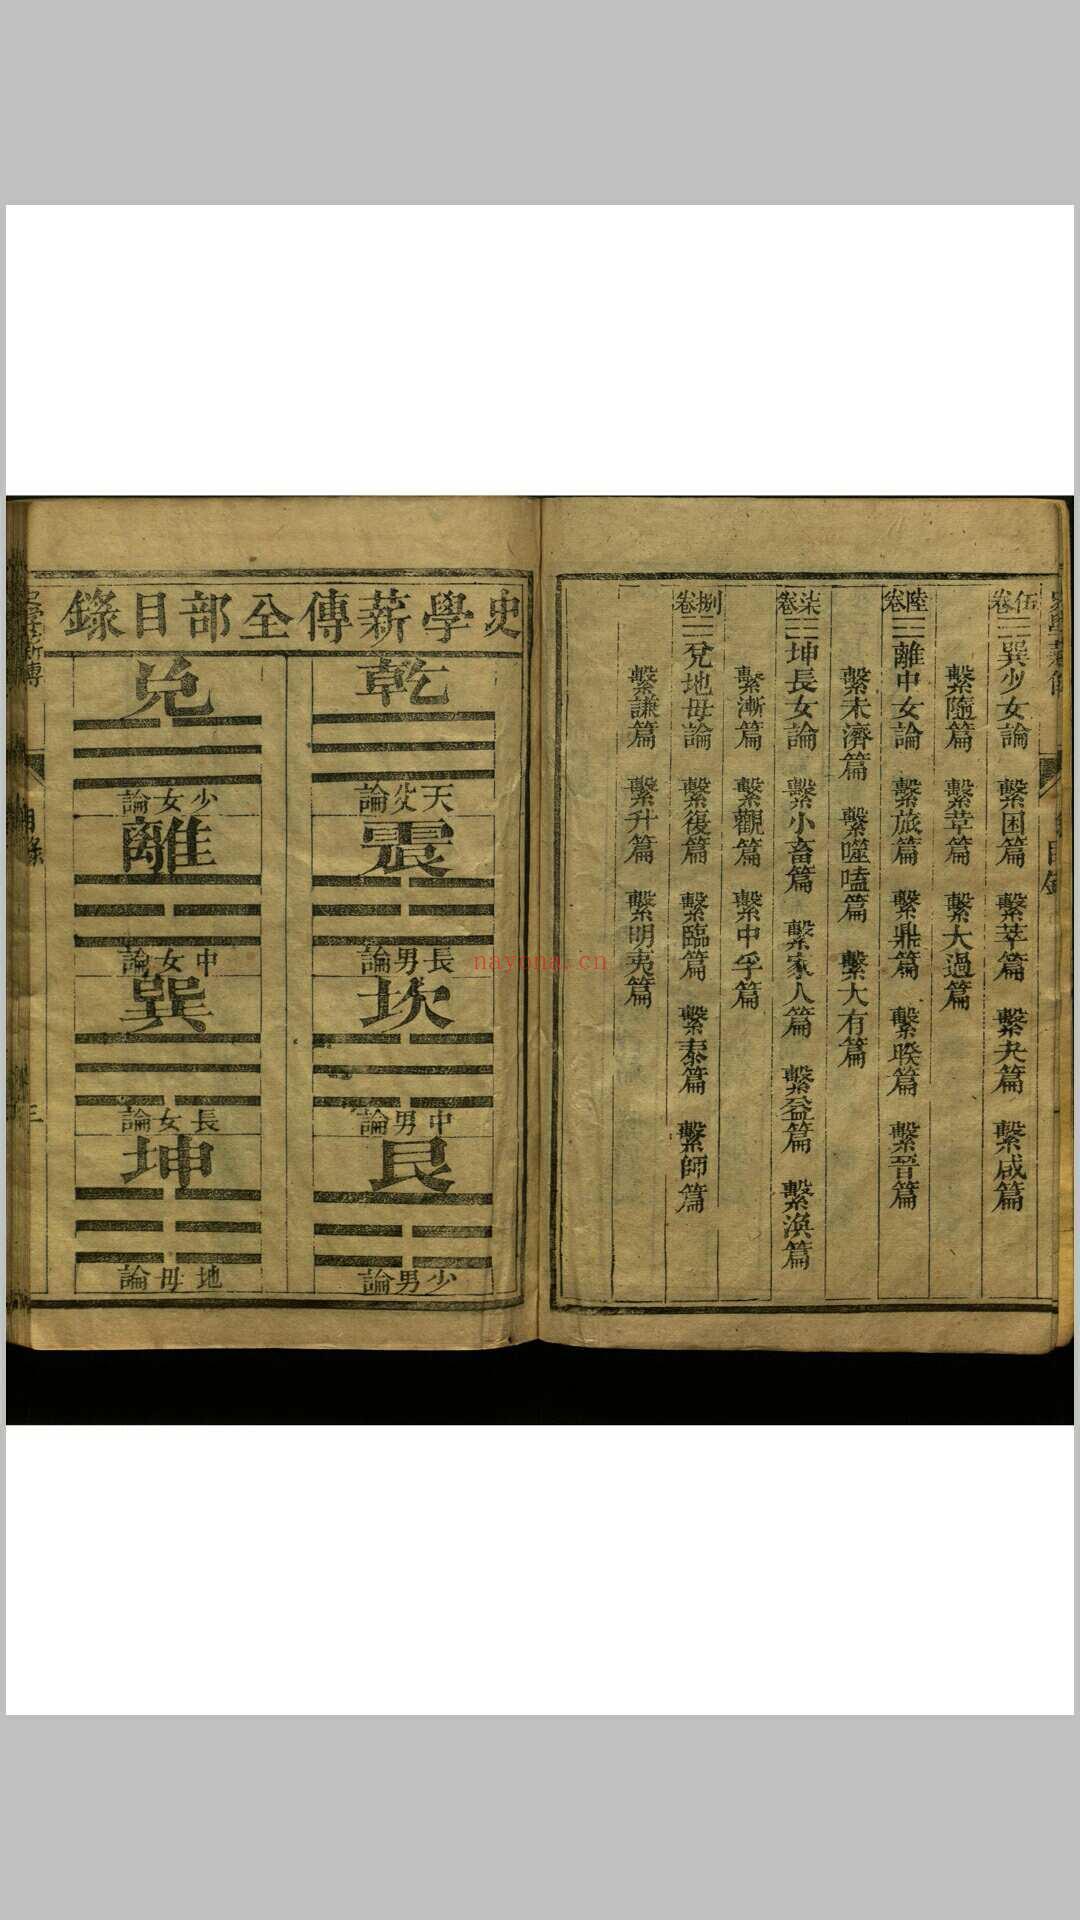 伍卷 三巽少女論 繫困篇 繫萃篇 繫夬篇 繫咸篇
繫隨篇 繫革篇 繫大過篇
陸卷 三離中女論 繫旅篇 繫鼎篇 繫睽篇 繫晉篇
繫未濟篇 繫噬嗑篇 繫大有篇
柒卷 三坤長女論 繫小畜篇 繫家人篇 繫益篇 繫渙篇
繫漸篇 繫觀篇 繫中孚篇
捌卷 三兌地母論 繫復篇 繫臨篇 繫泰篇 繫師篇
繫謙篇 繫升篇 繫明夷篇
史學薪傳全部目錄
乾
天父論
震
長男論
坎
中男論
艮
少男論
兌
少女論
離
中女論
巽
長女論
坤
地母論
史學薪傳
目錄
三
nayona.cn